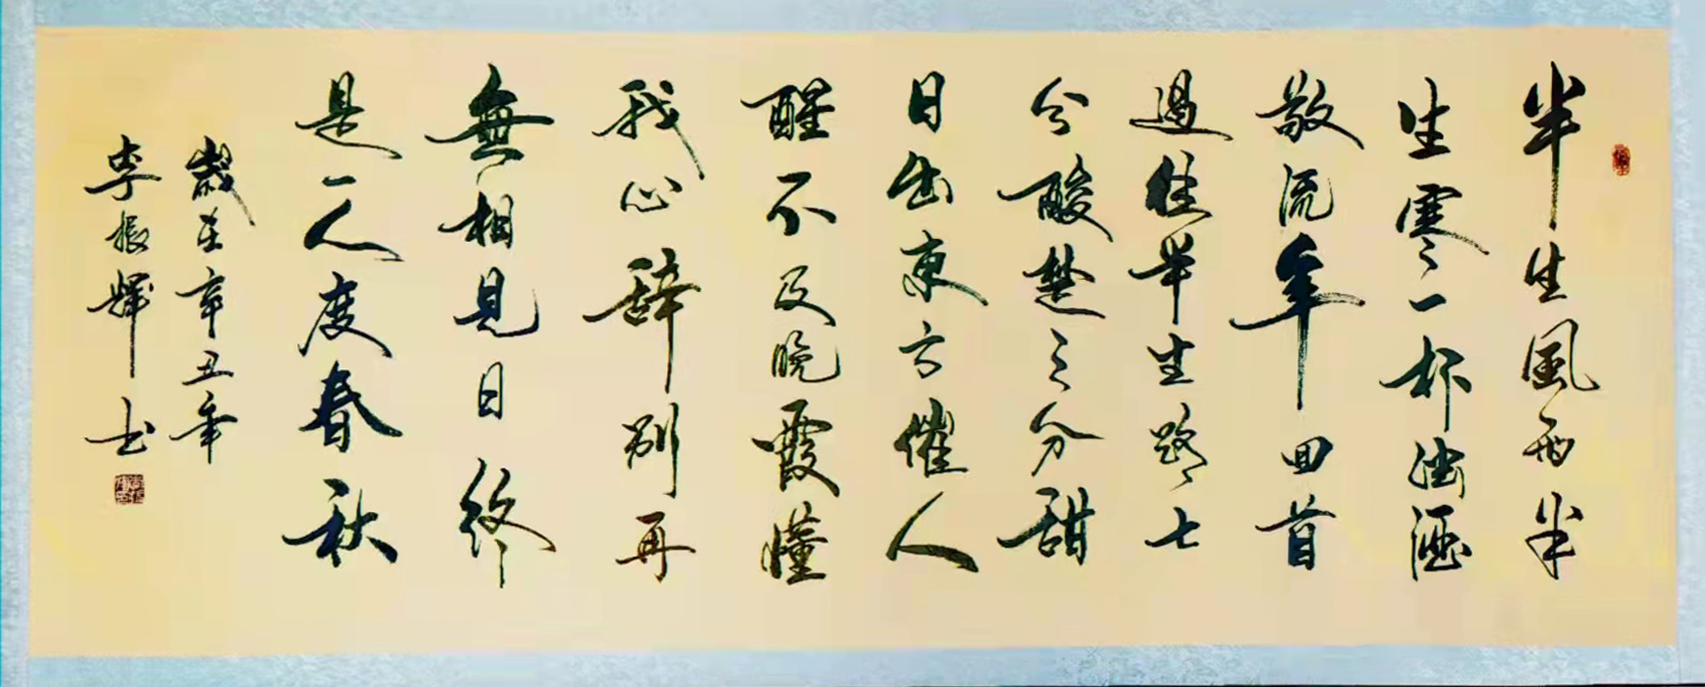 半生風雨半
生寒一杯濁酒
敬流年回首
過往半生路七
分酸楚三分甜
日出東方催人
醒不及晚霞懂
我心辞别再
無相見日终
是一人度春秋
歲在辛丑年
李振輝书